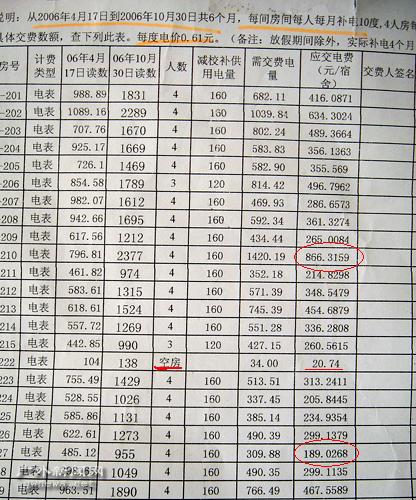 说明：从2006年4月17日到2006年10月30日共6个月，每间房间每人每月补电10度，4人房每
具体交费数额，查下列此表。每度电价0.61元。（备注：放假期间除外，实际补电4个月
房号 计费类型 06年4月17日读数 06年10月30日读数 人数 减校补供用电量 需交费电量 应交电费(元/宿舍) 交费人签名
-201 电表 988.89 1831 4 160 682.11 416.0871
-202 电表 1089.16 2289 4 160 1039.84 634.3024
-203 电表 707.76 1670 4 160 802.24 489.3664
-204 电表 925.17 1669 4 160 583.83 356.1363
-205 电表 726.1 1469 4 160 582.90 355.569
-206 电表 854.58 1789 3 120 814.42 496.7962
-207 电表 982.07 1612 4 160 469.93 286.6573
208 电表 942.66 1695 4 160 592.34 361.3274
209 电表 617.56 1212 4 160 434.44 265.0084
210 电表 796.81 2377 4 160 1420.19 866.3159
211 电表 461.82 974 4 160 352.18 214.8298
212 电表 583.61 1315 4 160 571.39 348.5479
213 电表 618.61 1524 4 160 745.39 454.6879
214 电表 557.72 1269 4 160 551.28 336.2808
215 电表 442.85 990 3 120 427.15 260.5615
222 电表 104 138 空房 34.00 20.74
223 电表 755.49 1429 4 160 513.51 313.2411
224 电表 528.55 1026 4 160 337.45 205.8445
225 电表 585.86 1131 4 160 385.14 234.9354
226 电表 622.61 1273 4 160 490.39 299.1379
27 电表 485.12 955 4 160 309.88 189.0268
1049 4 160 490.35 299.1135
电表 963.51 1890 4 160 766.49 467.5589